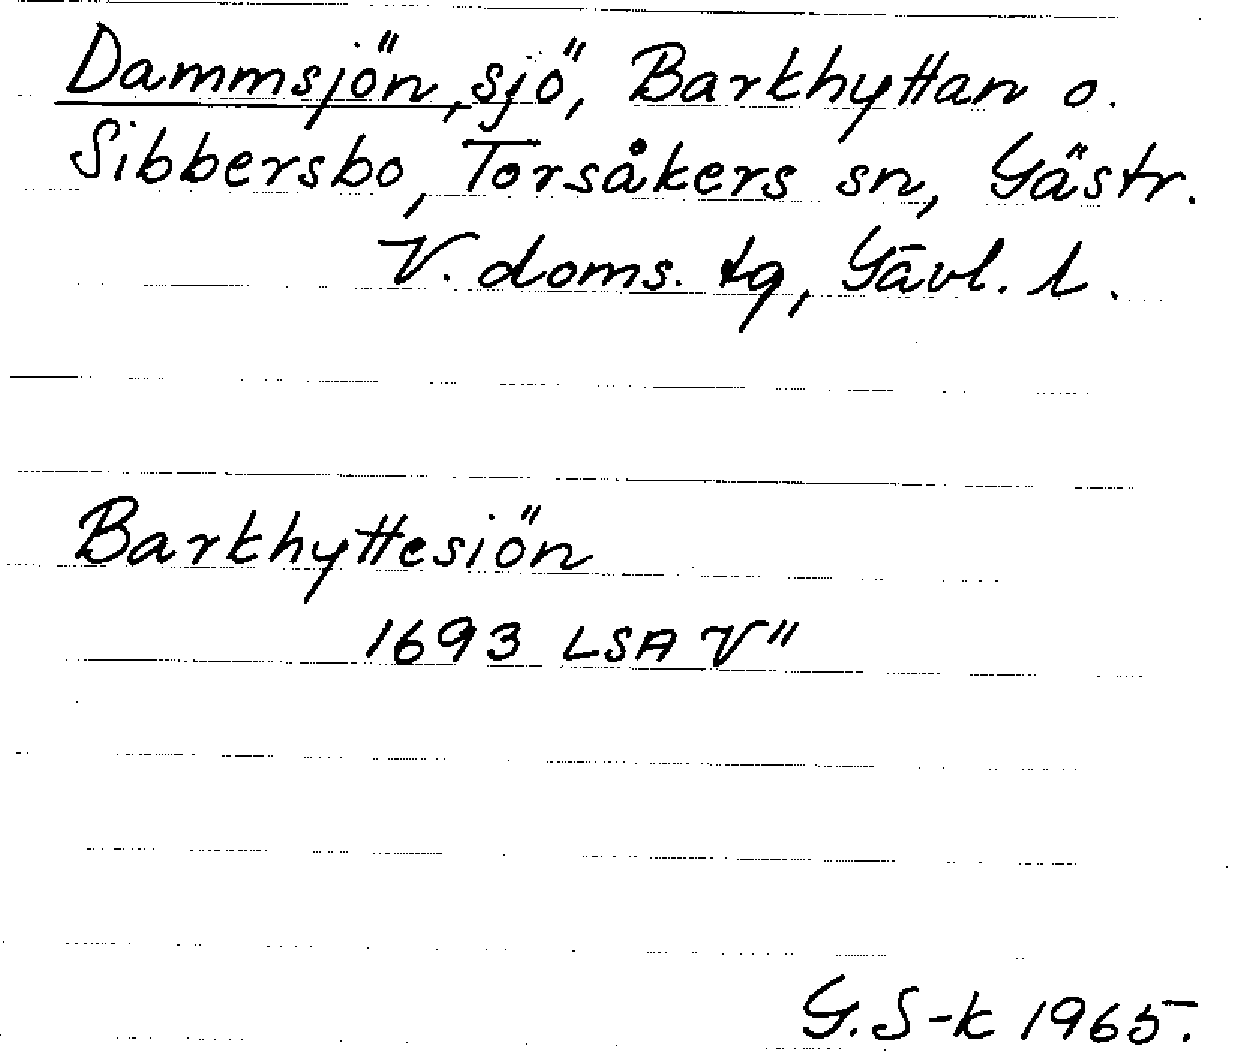 Dammsjön, sjö, Barkhyttan o.
Sibbersbo, Torsåkers sn, Gästr.
V. doms. tg, Gävl. l.
Barkhyttesiön
1693 LSA V"
G. S-k 1965.